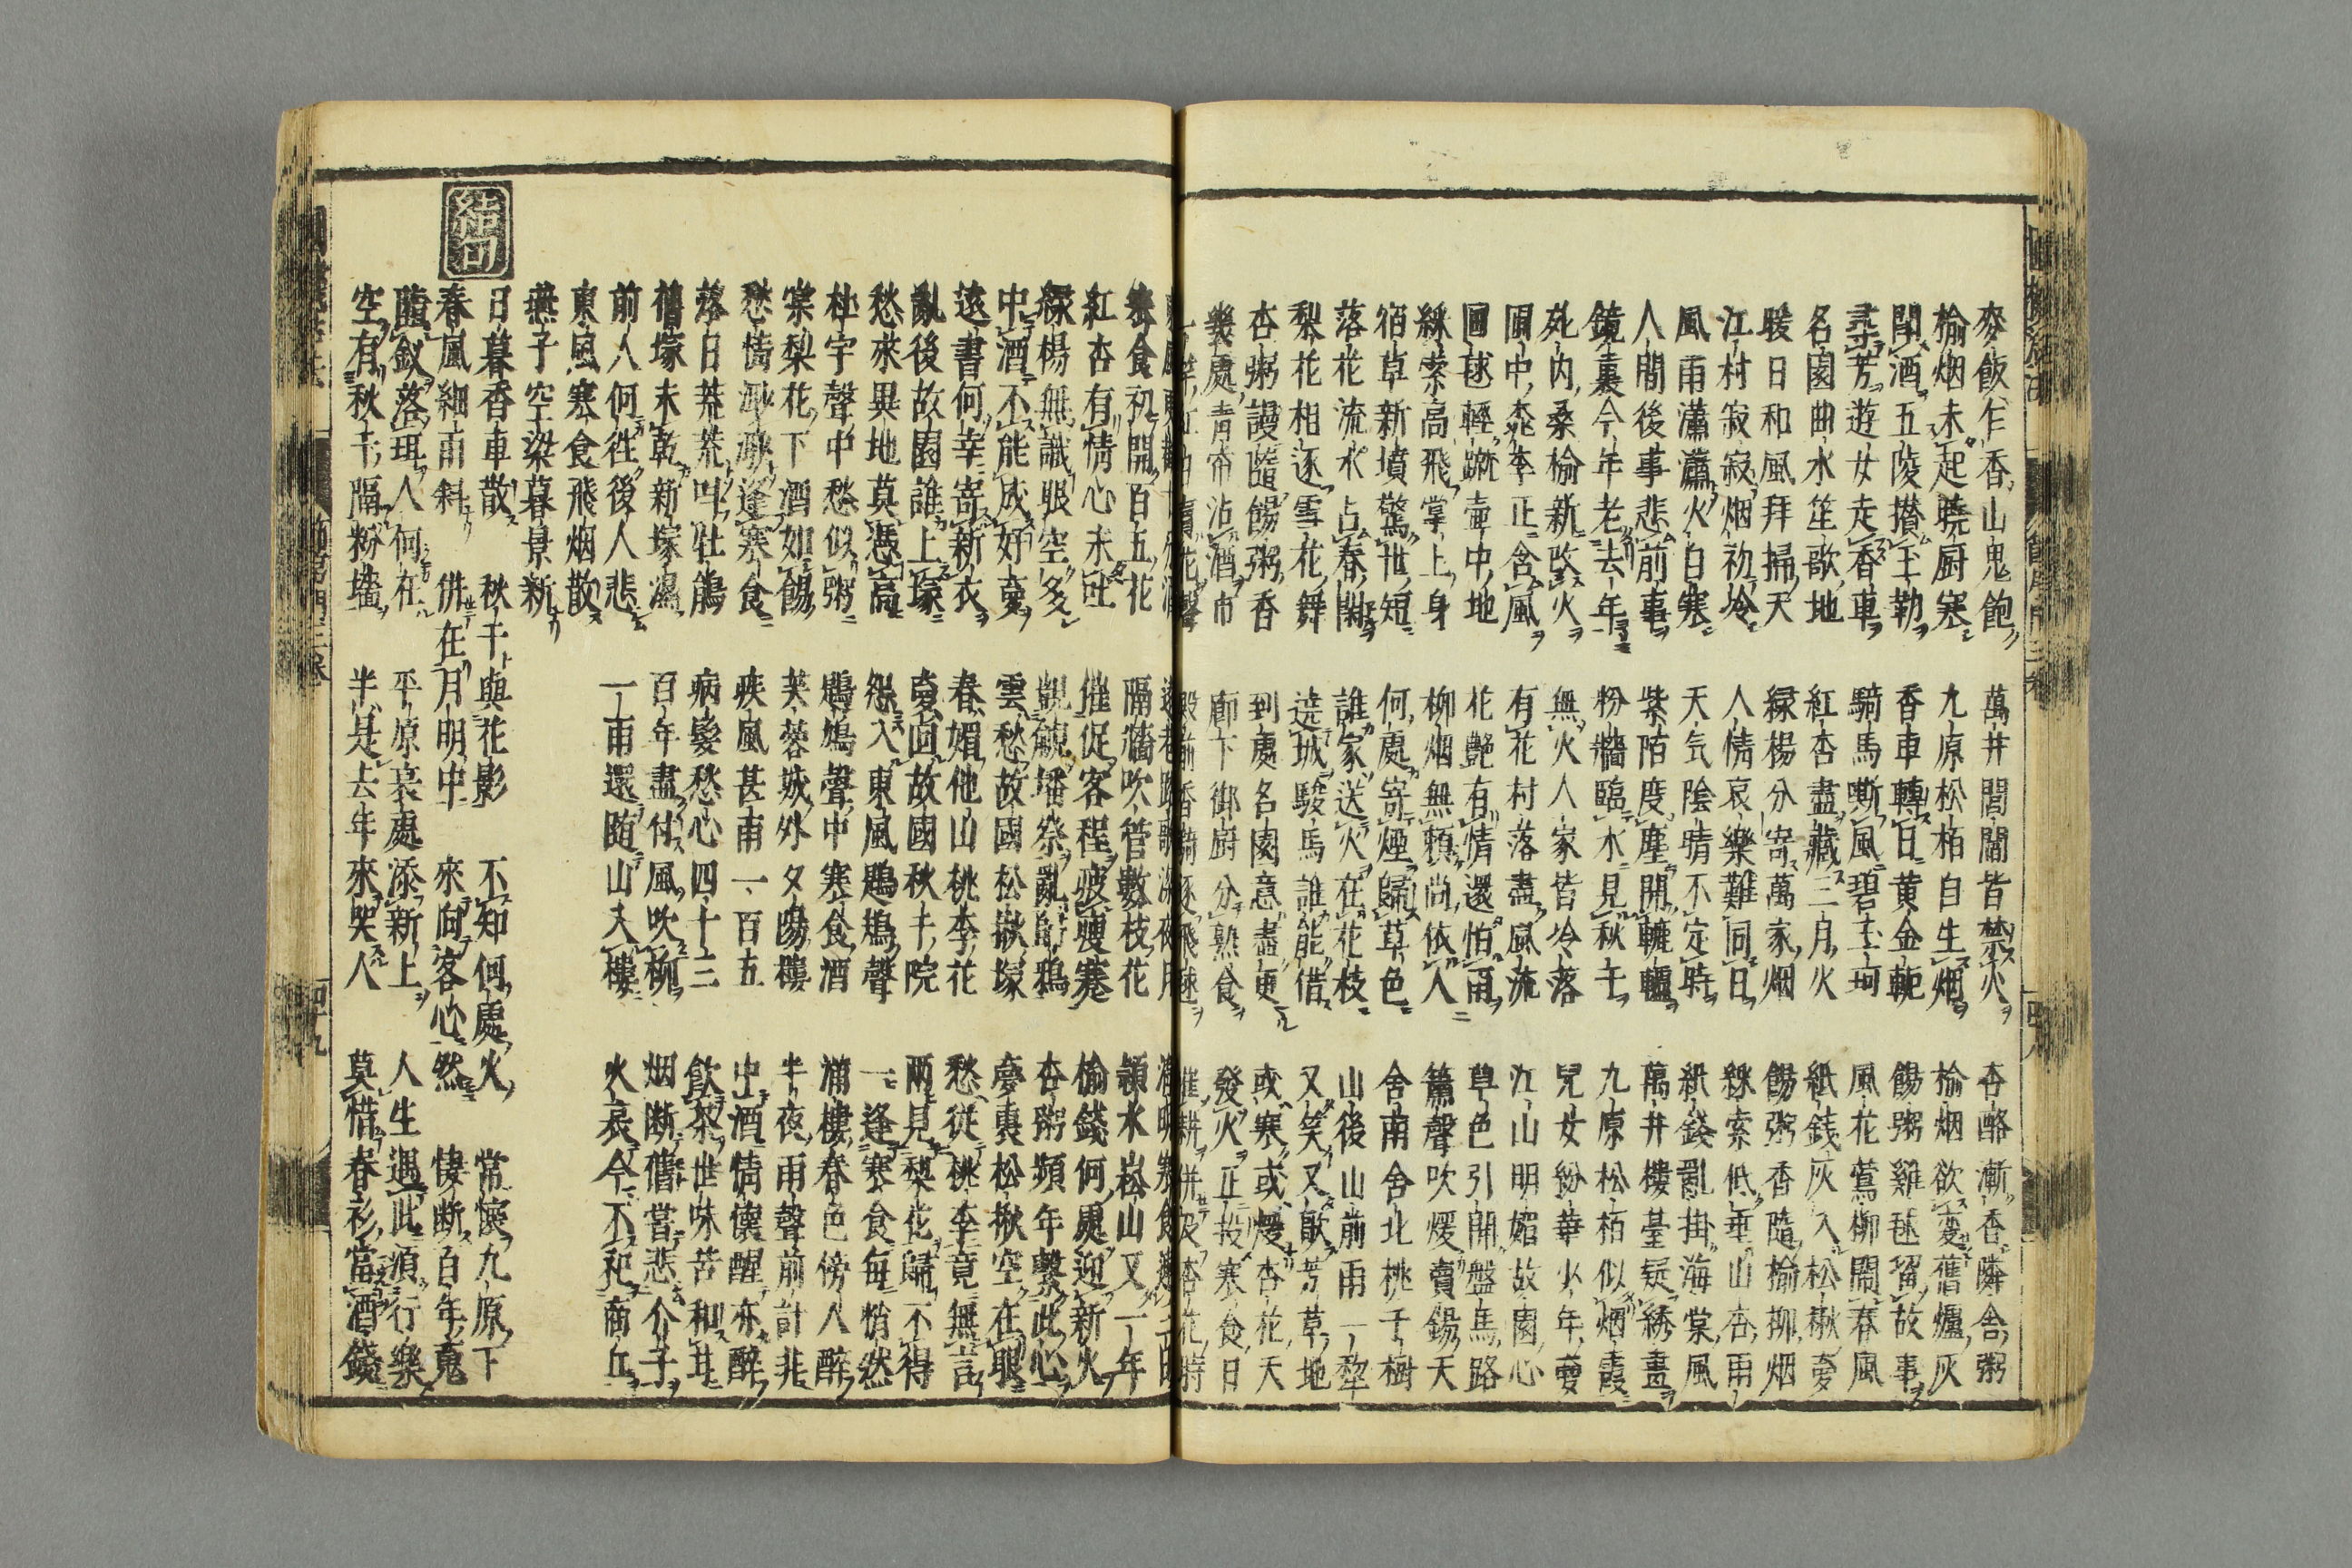 麥飯乍香山鬼飽　萬井閭閻皆禁火　杏酪漸香隣舍粥
榆烟未起曉厨寒　九原松栢自生烟　榆烟欲変舊爐灰
閗酒五陵攅玉勒　香車轉日黄金軛　餳粥雞毬留故事
尋芳遊女走香車　騎馬嘶風碧玉珂　風花鶯柳閙春風
名園曲水笙歌地　紅杏盡藏三月火　紙銭灰入松楸夢
暖日和風拜掃天　緑楊分寄萬家烟　餳粥香隨榆柳烟
江村寂寂烟初冷　人情哀樂難同日　綵索低垂山杏雨
風雨瀟瀟火自寒　天気陰晴不定時　紙錢亂掛海棠風
人間後事悲前事　紫陌度塵開轆轤　萬井樓臺疑綉畫
鏡裏今年老去年　粉牆臨水見秋千　九原松栢似烟霞
死内桑榆新改火　無火人家皆冷落　兒女紛華少年夢
園中桃李正含風　有花村落盡風流　江山明媚故園心
圓毬輕蹴壷中地　花艶有情還怕雨　草色引開盤馬路
綵索高飛掌上身　柳烟無頼尚依人　簫聲吹煖賣餳天
宿草新墳驚世短　何處寄煙歸草色　舍南舍北桃千樹
落花流水占春閑　誰家送火在花枝　山後山前雨一犂
梨花相逐雪花舞　遶城駿馬誰能借　又笑又歌芳草地
杏粥謾隨餳粥香　到處名園意盡更　或寒或煖杏花天
幾處青帘沽酒市　廊下御厨分熟食　發火正投寒食日
賣花聲　殿前香騎逐飛毬　催耕併及杏花時
寒食初開百五花　隔牆吹管數枝花　頴水嵩山又一年
紅杏有情心未吐　催促客程疲痩蹇　榆錢何處迎新火
緑楊無識眼空多　觀䑓墦祭亂鴉　杏粥頻年繫此心
中酒不能成好夢　雲愁故國松楸塚　夢裏松楸空在眼
遠書何幸寄新衣　春媚他山桃李花　愁從桃李竟無言
亂後故園誰上塚　夢回故國秋千院　兩見梨花歸不得
愁來異地莫憑高　怨入東風鶗鴂聲　一逢寒食毎悄然
杜宇聲中愁似粥　鶗鴂聲中寒食酒　滿樓春色傍人醉
棠梨花下酒如餳　芙蓉城外夕陽樓　半夜雨聲前計非
愁情渺渺逢寒食　疾風甚雨一百五　中酒情懐醒亦醉
落日荒荒叫杜鵑　病髮愁心四十二　飲茶世味苦和甘
舊塚未乾新塚濕　百年盡付風吹柳　烟断舊當悲介子
前人何往後人悲　一雨還随山入樓　火哀今不祀商丘
東風寒食飛烟散
燕子空梁暮景新
結句
日暮香車散　秋千與花影　不知何處火　常懷九原下
春風細雨斜　併在月明中　來向客心然　悽断百年魂
隨釵落珥人何在　平原哀處添新上　人生遇此須行樂
空有秋千隔粉墻　半是去年來哭人　莫惜春衫當酒錢